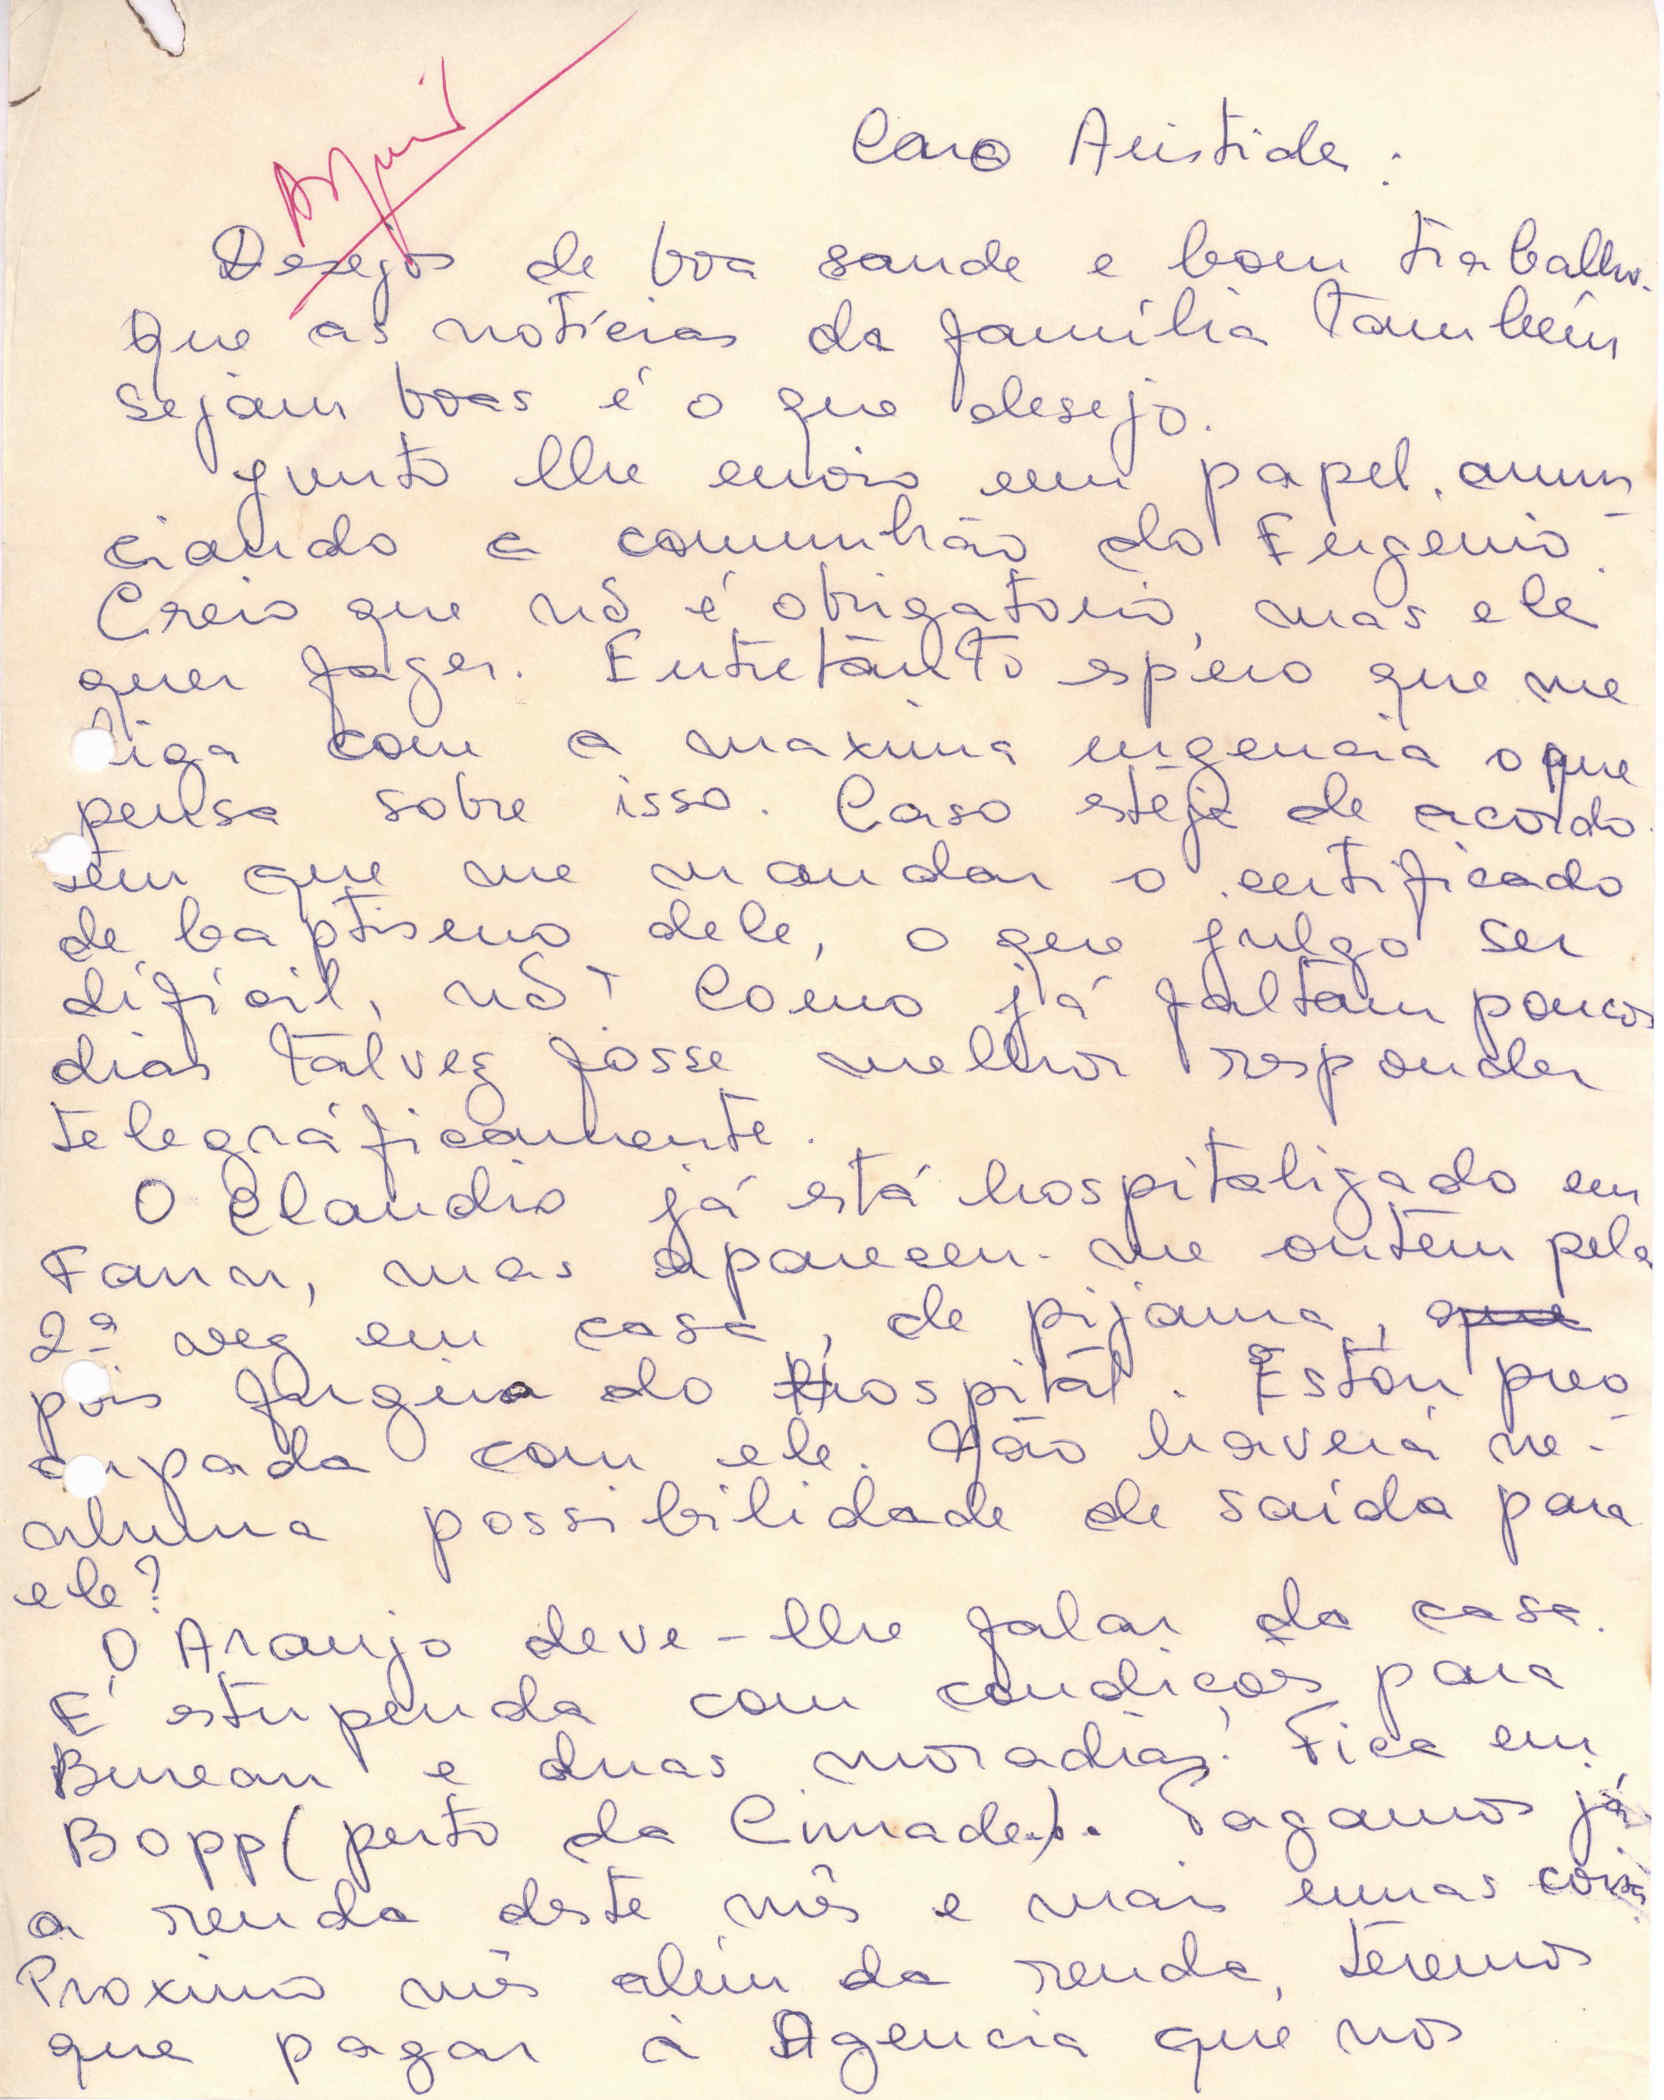 Caro Aristides:
Desejos de boa saude e bom trabalho.
Que as notícias da família também
sejam boas é o que desejo.
Junto lhe envio um papel, anun-
ciando a comunhão do Eugenio.
Creio que nõ é obrigatorio, mas ele
quer fazer. Entretanto espero que me
diga com a maxima urgencia o que
pensa sobre isso. Caso esteja de acordo
tem que me mandar o certificado
de baptismo dele, o que julgo ser
difícil, nõ? Como já faltam poucos
dias talvez fosse melhor responder
telegráficamente.
O Claudio já está hospitalizado em
Fann, mas apareceu-me ontem pela
2ª vez em casa, de pijama, que
pois fugira do Hospital. Estou preo
cupada com ele. Não haverá ne-
nhuma possibilidade de saída para
ele?
O Araujo deve-lhe falar da casa.
É estupenda com condições para
Bureau e duas moradias. Fica em
Bopp (perto da Cimade). Pagamos já
a renda deste mês e mais umas coisas
Proximo mês além da renda, teremos
que pagar à Agencia que nos